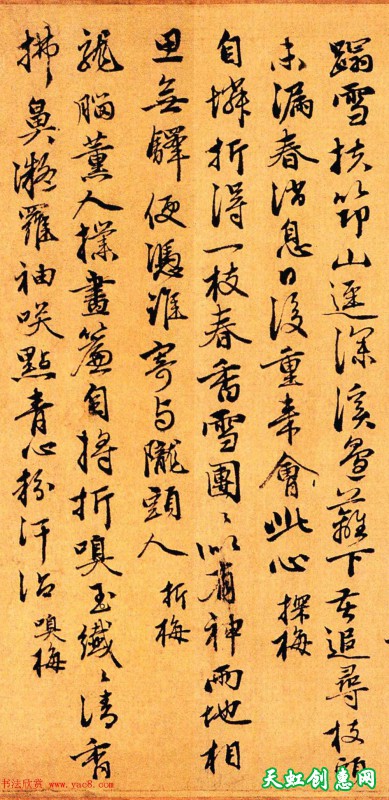 蹋雪扶筇山逕深溪邊籬下苦追尋枝頭
未漏春消息日後重来會此心 探梅
自憐折得一枝春香雪團〻似有神兩地相
思無驛使憑誰寄与隴頭人 折梅
龍腦薰人撲畫簾自將折嗅玉纖〻清香
拂鼻凝羅袖笑點青心粉汗沾 嗅梅
书法欣赏 www.yac8.com
天虹创惠网